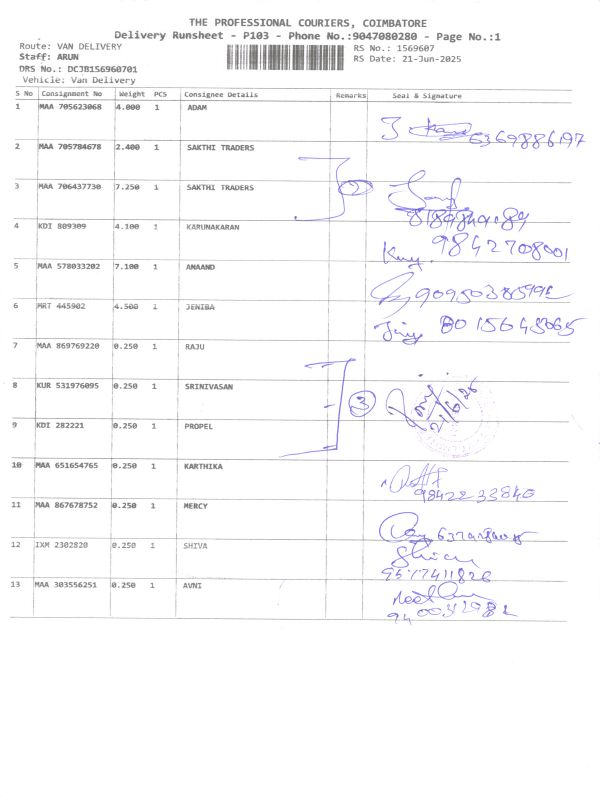 THE PROFESSIONAL COURIERS, COIMBATORE
Delivery Runsheet - P103 - Phone No.:9047080280 - Page No.:1
Route: VAN DELIVERY RS No.: 1569607
Staff: ARUN RS Date: 21-Jun-2025
DRS No.: DCJB156960701
Vehicle: Van Delivery
S No Consignment No Weight PCS Consignee Details Remarks Seal & Signature
1 MAA 705623068 4.000 1 ADAM
6369886197
2 MAA 705784678 2.400 1 SAKTHI TRADERS
3 MAA 706437730 7.250 1 SAKTHI TRADERS
2
4 KDI 809309 4.100 1 KARUNAKARAN
9842708001
5 MAA 578033202 7.100 1 ANAAND
6 MRT 445902 4.500 1 JENIBA
7 MAA 869769220 0.250 1 RAJU
8 KUR 531976095 0.250 1 SRINIVASAN
3
21/6/25
9 KDI 282221 0.250 1 PROPEL
10 MAA 651654765 0.250 1 KARTHIKA
9842233840
11 MAA 867678752 0.250 1 MERCY
12 IXM 2302820 0.250 1 SHIVA
9577411826
13 MAA 303556251 0.250 1 AVNI